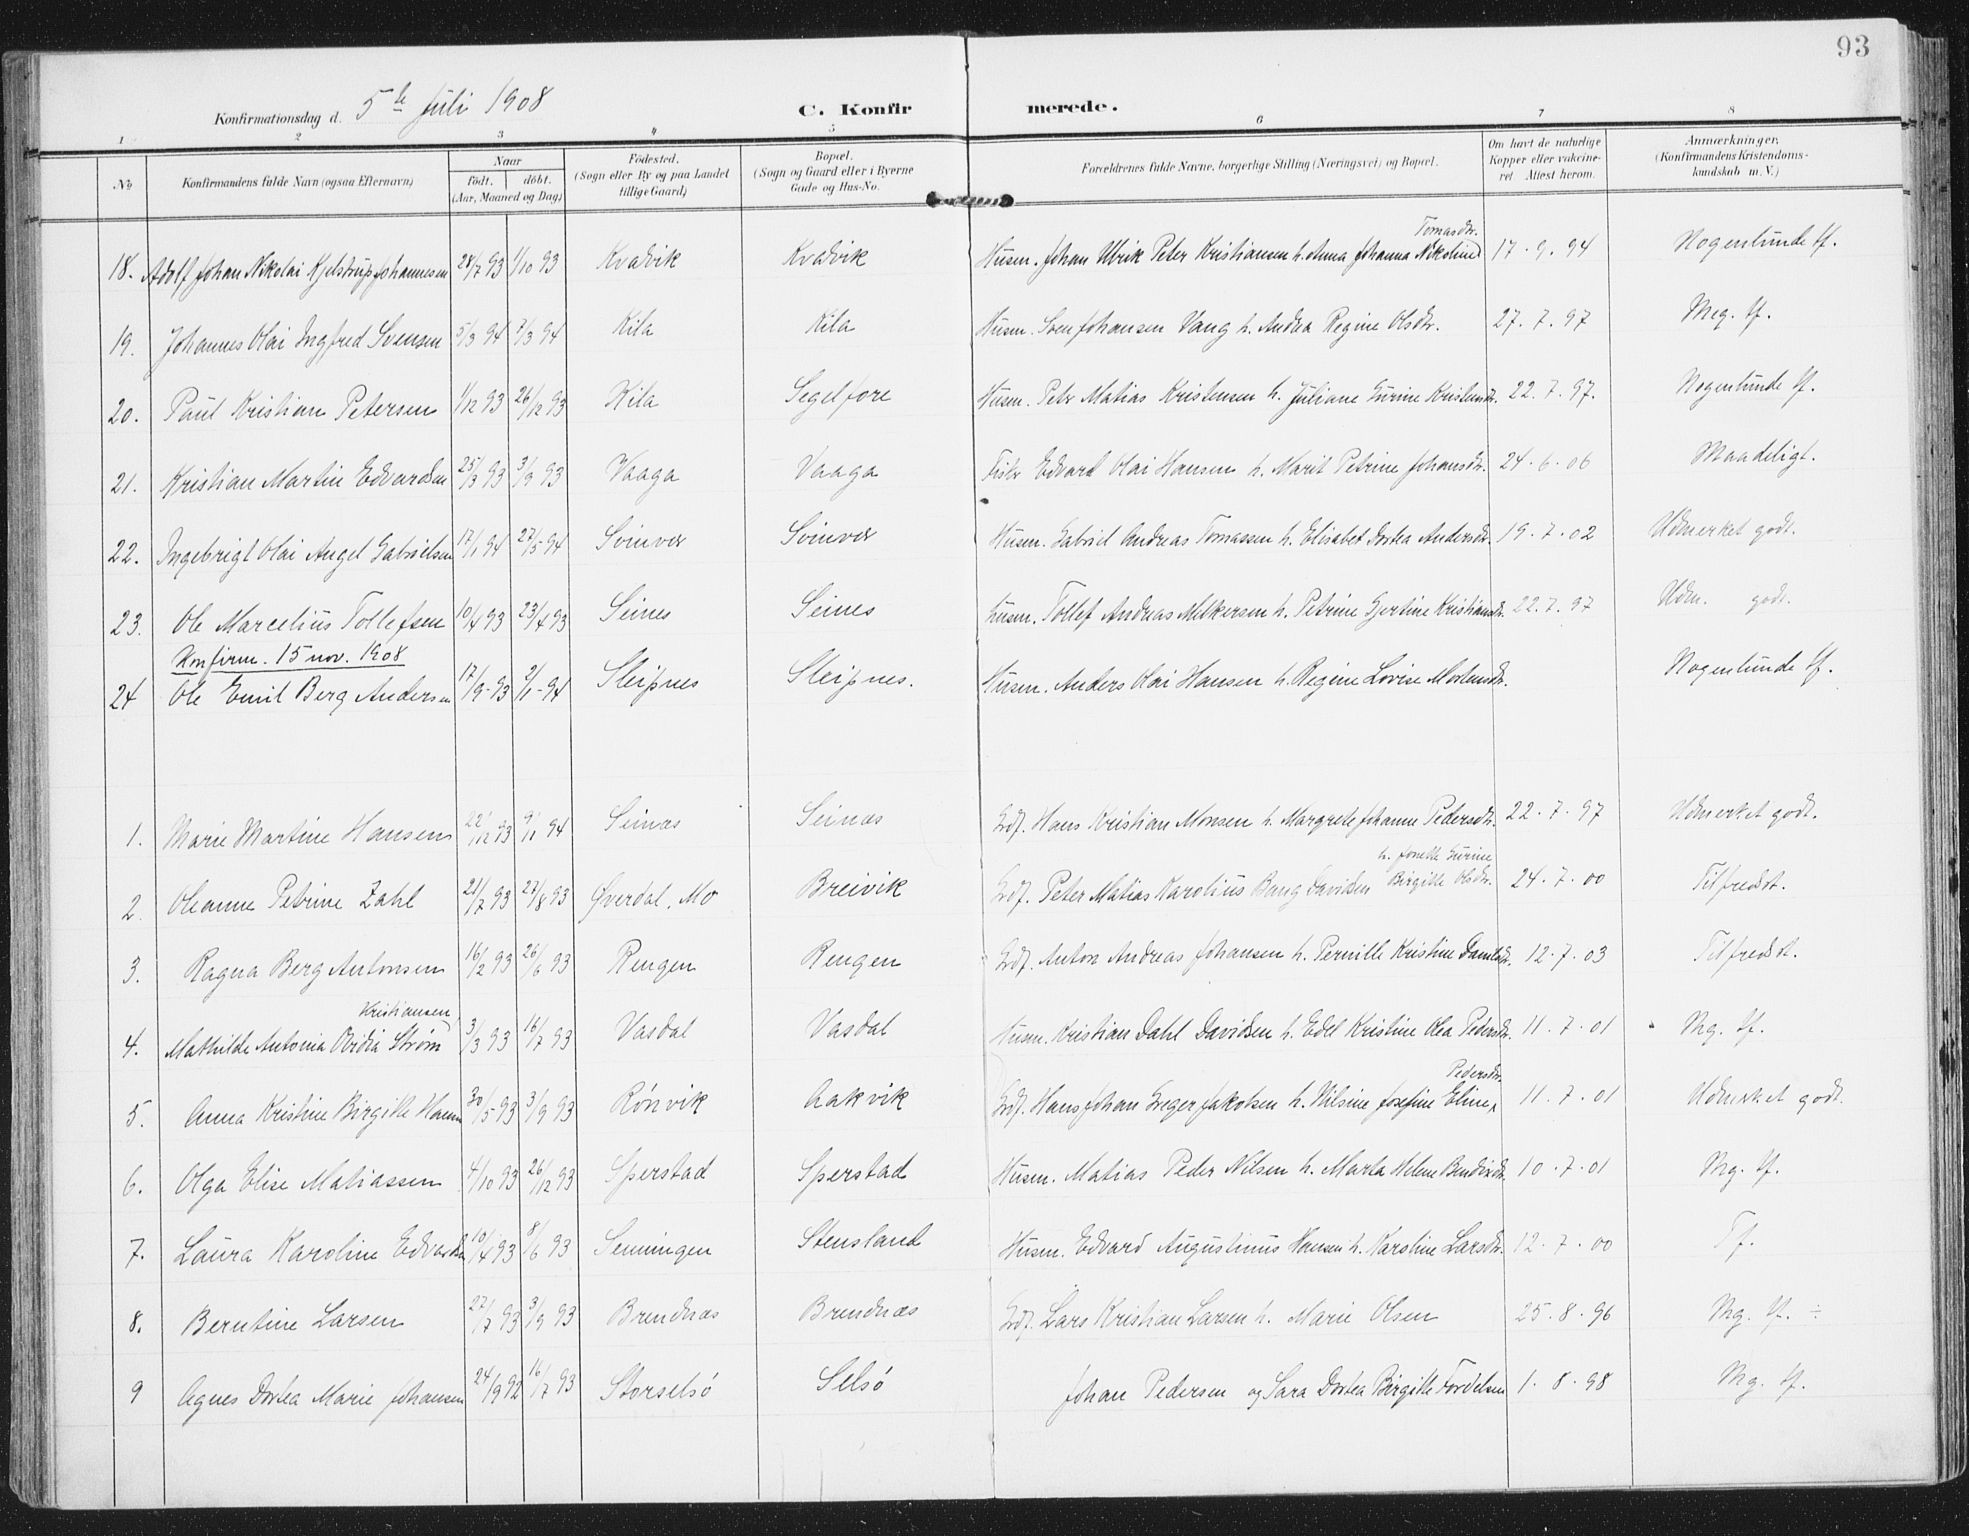 93
Konfirmationsdag d. 5te Juli 1908 C. Konfirmerede.
1 2 3 4 5 6 7 8
No Konfirmandens fulde Navn (ogsaa Efternavn) Naar födt. döbt. (Aar, Maaned og Dag) Födested. (Sogn eller By og paa Landet tillige Gaard) Bopæl. (Sogn og Gaard eller i Byerne Gade og Hus-No. Forældrenes fulde Navne, borgerlige Stilling (Næringsvei) og Bopæl. Om havt de naturlige Kopper eller vakcineret Attest herom. Anmærkninger, (Konfirmandens Kristendomskundskab m. V.)
18. Adolf Johan Nikolai Kjelstrup Johannesen 28/7 93 1/10 93 Kvadvik Kvadvik Husm. Johan Ulrik Peter Kristiansen h. Anna Johanna Nikoline Tomasdtr. 17.9.94 Nogenlunde tf.
19. Johannes Olai Ingfred Svensen 5/3 94 7/3 94 Kila Kila Husm. Sven Johansen Vang h. Andrea Regine Olsdtr. 27.7.97 Meg. tf.
20. Paul Kristian Petersen 1/12 93 26/12 93 Kila Segelfore Husm. Peter Matias Kristensen h. Juliane Gurine Kristensdtr. 22.7.97. Nogenlunde tf.
21. Kristian Martin Edvardsen 25/3 93 3/9 93 Vaaga Vaaga Fisker Edvard Olai Hansen h. Marit Petrine Johansdtr. 24.6.06 Maadeligt.
22. Ingebrigt Olai Angel Gabrielsen 17/1 94 27/5 94 Svinvær Svinvær Husm. Gabriel Andreas Tomassen h. Elisabet Dortea Andersdtr. 19.7.02 Udmerket godt.
23. Ole Marcelius Tollefsen 10/4 93 23/4 93 Seines Seines Husm. Tollef Andreas Melkersen h. Petrine Gjertine Kristiansdtr. 22.7.97 Udm. godt.
Konfirm. 15 nov. 1908
24 Ole Emil Berg Andersen 17/9-93 2/1-94 Sleipnes Sleipnes. Husm. Anders Olai Hansen h. Regine Lovise Mortensdtr. Nogenlunde tf.
1. Marie Martine Hansen 22/12 93 9/1 94 Seinæs Seinæs Grdf. Hans Kristian Monsen h. Margrete Johanne Pedersdtr. 22.7.97 Udmerket godt.
2. Oleanne Petrine Zahl 21/7 93 27/8 93 Øverdal, Mo Breivik Grdf. Peter Matias Karolius Bang Davidsen h. Jonette Gurine Birgitte Olsdtr. 24.7.00 Tilfredst.
3. Ragna Berg Antonsen 16/2 93 26/6 93 Rengen Rengen Grdf. Anton Andreas Johansen h. Pernille Kristine Danielsdtr. 12.7.03 Tilfredst.
4. Mathilde Antonia Ovidia Strøm Kristiansen 3/3 93 16/7 93 Vasdal Vasdal Husm. Kristian Dahl Davidsen h. Edel Kristine Olea Pedersdtr. 11.7.01 Mg. tf.
5. Anna Kristine Birgitte Hansen 30/5 93 3/9 93 Rönvik Aakvik Grdf. Hans Johan Greger Jakobsen h. Nilsine Josefine Eline Pedersdtr. 11.7.01 Udmerket godt.
6. Olga Elise Matiassen 4/10 93 26/12 93 Sperstad Sperstad Husm. Matias Peder Nilsen h. Marta Helene Bendixdtr. 10.7.01 Mg. tf.
7. Laura Karoline Edvardsen 10/4 93 8/6 93 Senningen Stensland Husm. Edvard Augustinus Hansen h. Karoline Larsdtr. 12.7.00 Tf.
8. Berntine Larsen 27/7 93 3/9 93 Brendnæs Brendnæs Grdf. Lars Kristian Larsen h. Marie Olsen 25.8.96 Mg. tf. ÷
9 Agnes Dortea Marie Johansen 24/9 92 16/7 93 Storselsö Selsö Johan Pedersen og Sara Dortea Birgitte Fordelsen 1.8.98 Mg. tf.